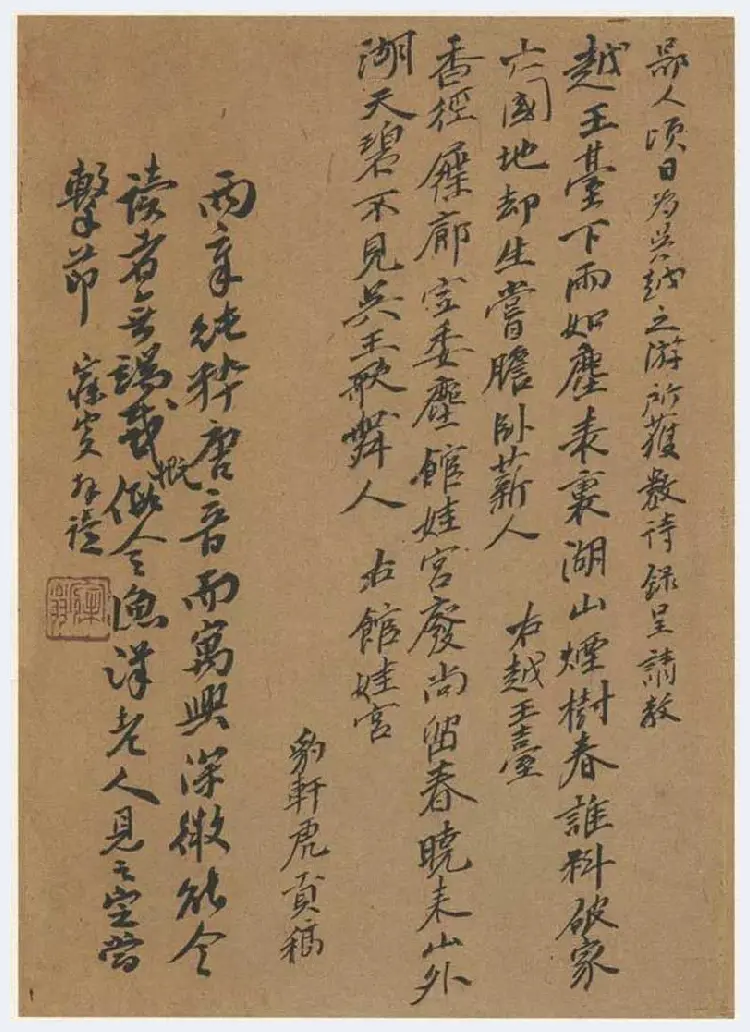 鄙人頃日为吳越之游所獲數诗錄呈請教
越王臺下雨如塵表裏湖山煙樹春誰料破家
亡國地却生嘗膽卧薪人 右越王臺
香徑屧廊空委塵館娃宮廢尚留春曉来山外
湖天碧不見吳王歌舞人 右館娃宮
豹軒虎稿
两章純粹唐音而寓興深微能令
读者無端感慨假令漁洋老人見之定當
擊節 寐叟拜读